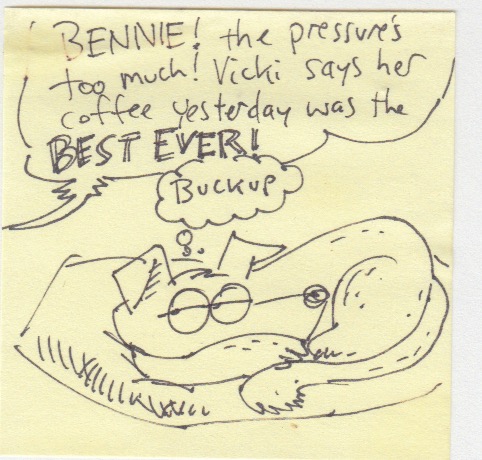 BENNIE! the pressure's
too much! Vicki says her
coffee yesterday was the
BEST EVER!
BUCKUP